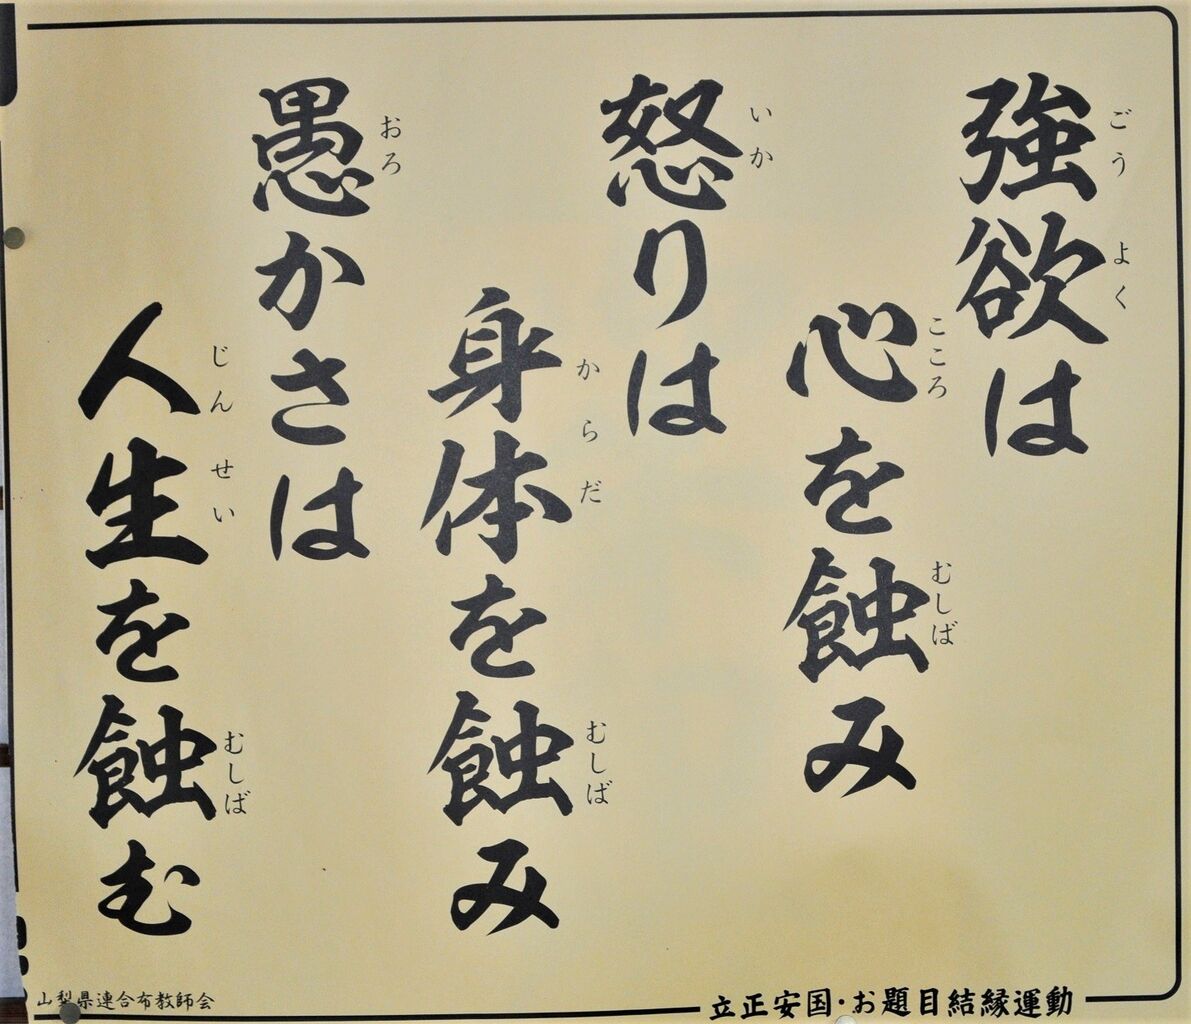 強欲は
ごうよく
心を蝕み
こころ むしば
怒りは
いか
身体を蝕み
からだ むしば
愚かさは
おろ
人生を蝕む
じんせい むしば
立正安国・お題目結縁運動
山梨県連合布教師会